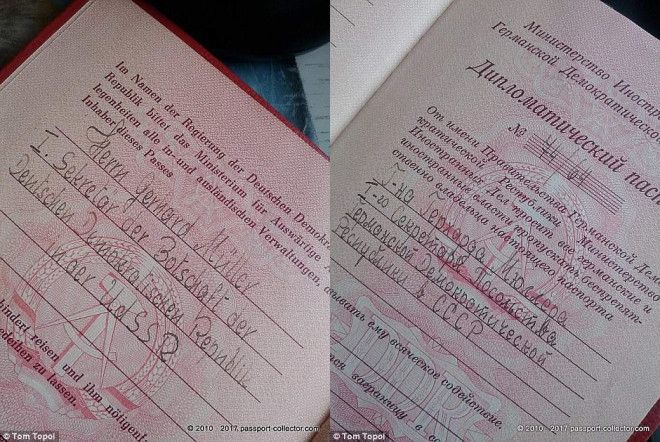 Im Namen der Regierung der Deutschen Demokr
Republik bittet das Ministerium für Auswärtige A
legenheiten alle In- und ausländischen Verwaltungen, d
Inhaber dieses Passes
Herrn Gerhard Müller
I. Sekretär der Botschaft der
Deutschen Demokratischen Republik
in der UdSSR
hindert reisen und ihm nötigen
edeihen zu lassen.
© Tom Topol
© 2010 - 2017 passport-collector.com
Министерство Иностр
Германской Демократическо
Дипломатический пасп
№
От имени Правительства Германской Демо
кратической Республики Министерство
Иностранных Дел просит все германские и
иностранные власти пропускать беспрепят-
ственно владельца настоящего паспорта
Г-на Герхарда Мюллера
I-го Секретаря Посольства
Германской Демократической
Республики в СССР
зывать ему всяческое содействие.
© Tom Topol
© 2010 - 2017 passport-collector.com